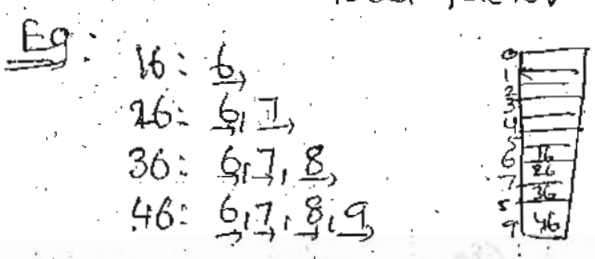 Eg:
16: 6,
26: 6, 7,
36: 6, 7, 8,
46: 6, 7, 8, 9,
0
1
2
3
4
5
6 16
7 26
8 36
9 46